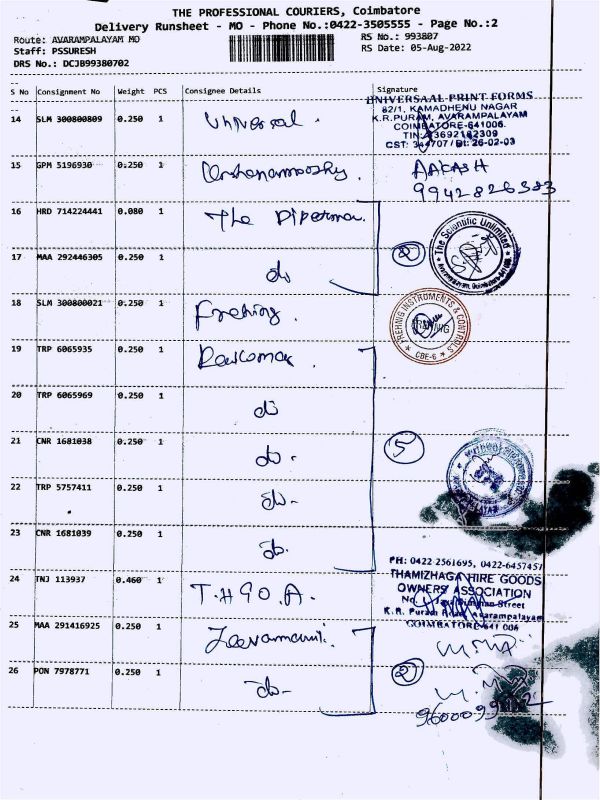 THE PROFESSIONAL COURIERS, Coimbatore
Delivery Runsheet - MO - Phone No.:0422-3505555 - Page No.:2
Route: AVARAMPALAYAM MO
RS No.: 993807
Staff: PSSURESH
RS Date: 05-Aug-2022
DRS No.: DCJB99380702
S No Consignment No Weight PCS Consignee Details Signature
14 SLM 300800809 0.250 1 Universal.
UNIVERSAAL PRINT FORMS
82/1, KAMADHENU NAGAR
K.R.PURAM, AVARAMPALAYAM
COIMBATORE-641006
CST: 344707 / Dt: 26-02-03
15 GPM 5196930 0.250 1
AAKASH
16 HRD 714224441 0.080 1 The
2
The Scientific Unlimited
17 MAA 292446305 0.250 1 do
18 SLM 300800021 0.250 1
FREHNIG INSTRUMENTS & CONTROLS
FREHNIG
CBE-6
19 TRP 6065935 0.250 1
20 TRP 6065969 0.250 1 do
21 CNR 1681038 0.250 1 do-
5
22 TRP 5757411 0.250 1 do-
23 CNR 1681039 0.250 1 do.
24 TNJ 113937 0.460 1 T.H.G.O.A.
PH: 0422-2561695, 0422-6457457
THAMIZHAGA HIRE GOODS
OWNERS ASSOCIATION
Street
K.R. Puram Road, Avarampalayam
COIMBATORE-641 006
25 MAA 291416925 0.250 1
2
26 PON 7978771 0.250 1 do-